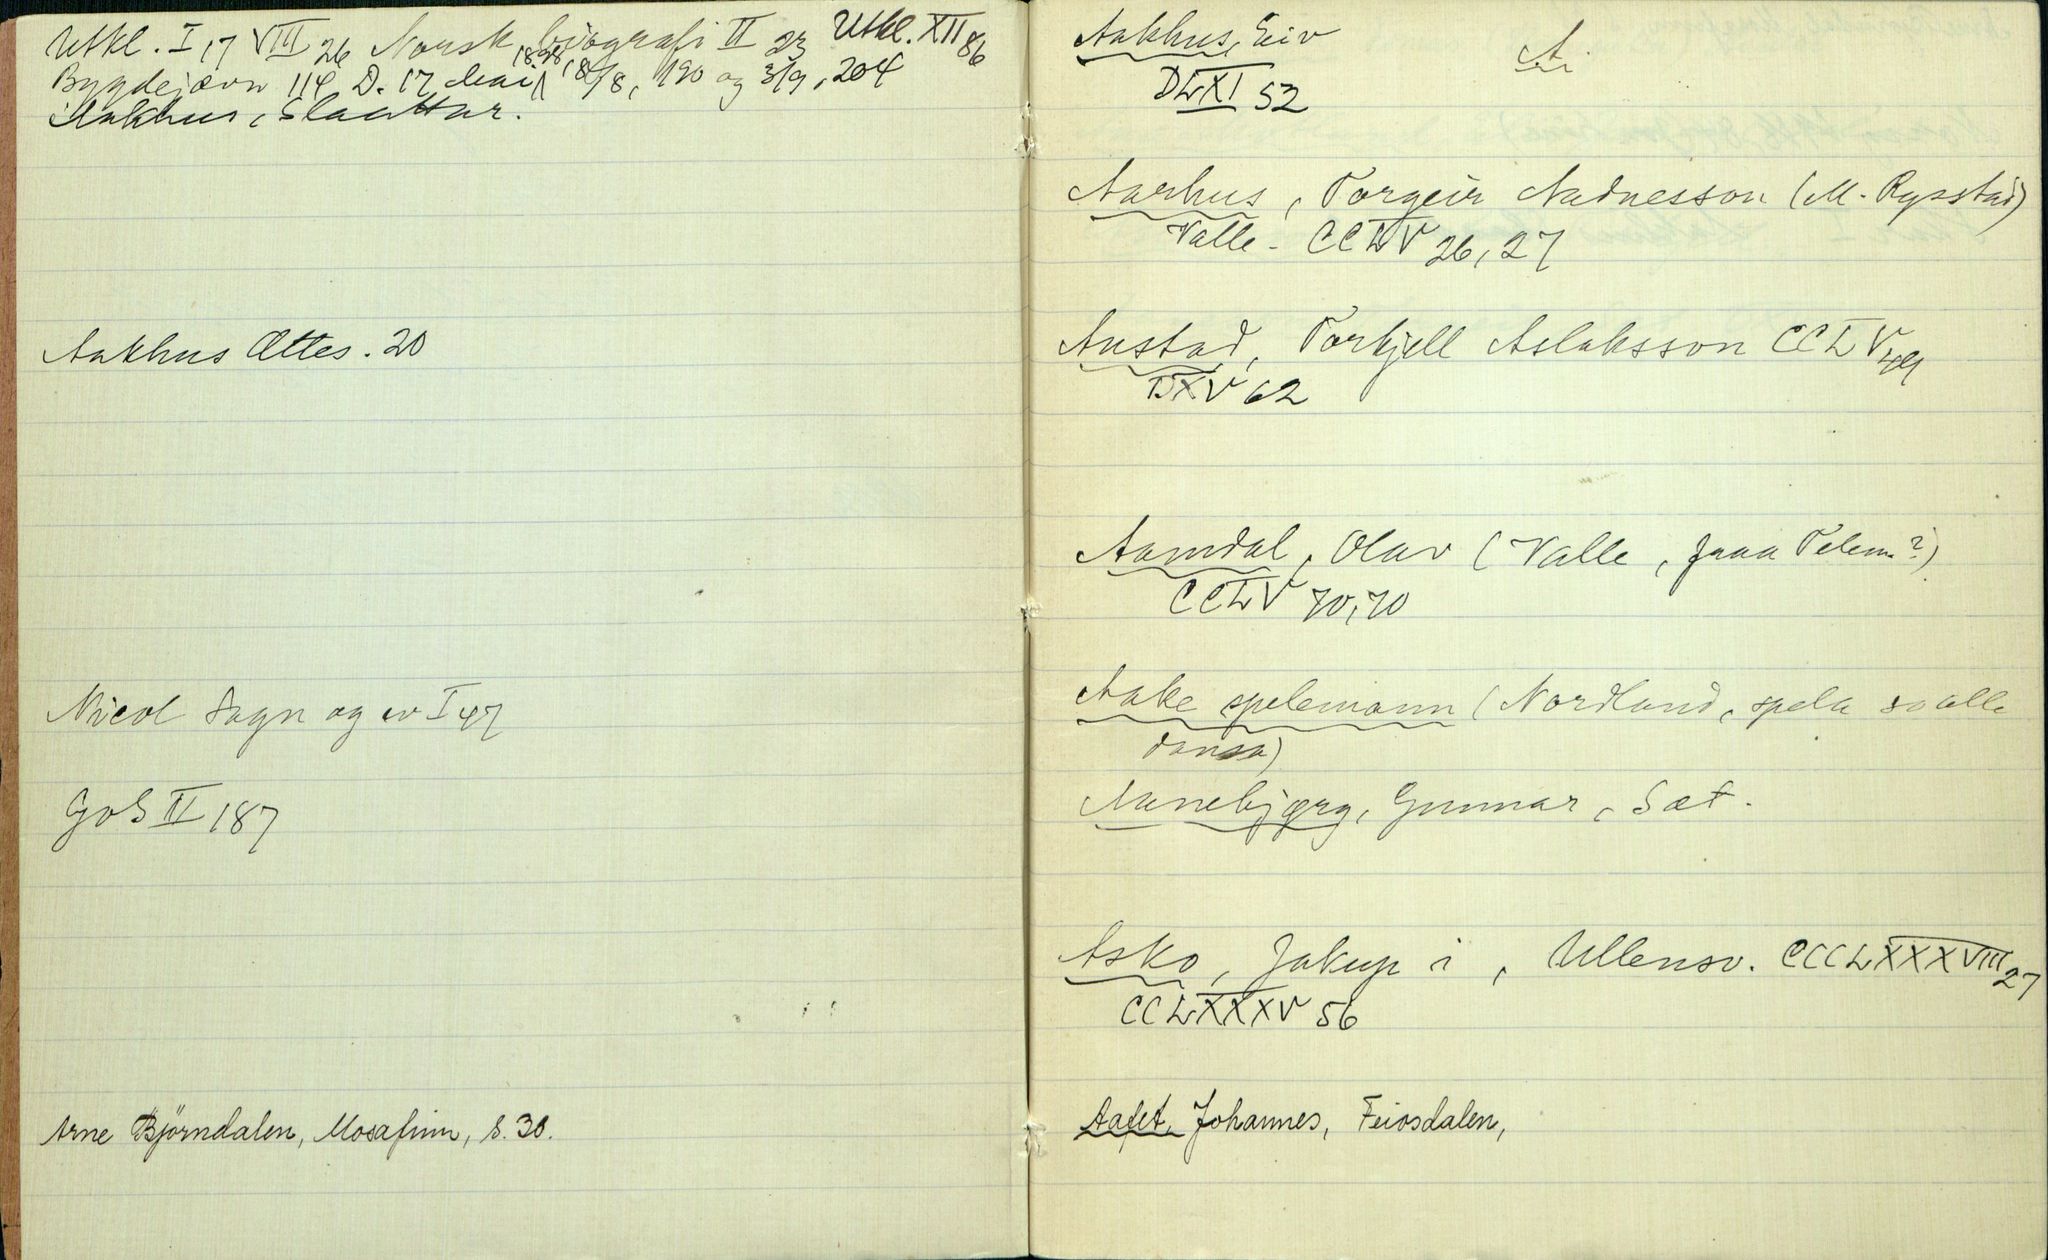 Utkl. I 17 VIII 26 Norsk biografi II 23 Utkl. XII 86
Bygdejævn 114 D. 17 mai 1828, 18/8, 190 og 3/9, 204
Aakhus, Slaattar.
Aakhus Ættes. 20
Nicol Sogn og ev I 47
GoS II 187
Arne Björndalen, Mosafinn, s. 30.
A.
Aakhus, Eiv
DLXI 52
Aarhus, Torgeir Aadnesson (M. Rysstad)
Valle - CCLV 26, 27
Austad, Torkjell Aslaksson CCLV 49
DXV 62
Aamdal, Olav (Valle, fraa Telem?)
CCLV 70, 70
Aake spelemann (Nordland, spela so alle
dansa)
Aanebjørg, Gunnar, Sæt.
Asko, Jakup i, Ullensv. CCCLXXXVIII 27
CCLXXXV 56
Aafet, Johannes, Feiosdalen,